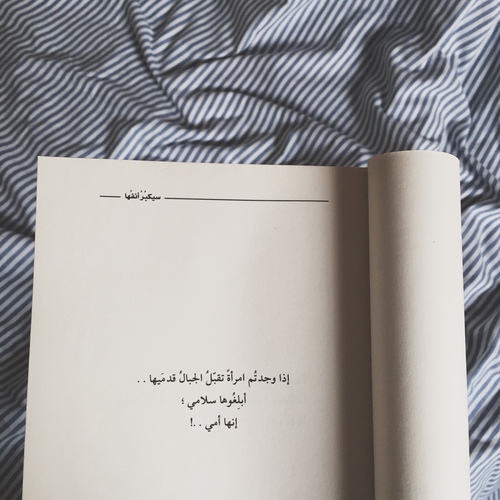 سيكبُرُ أنفُها
إذا وجدتُم امرأةً تقبّلُ الجبالُ قدمَيها . .
أبلِغُوها سلامي ؛
إنها أمي . .!